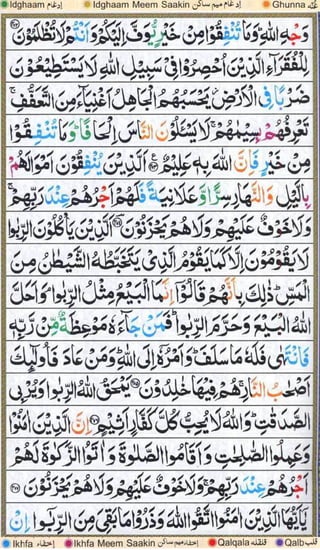 Idghaam إدغام Idghaam Meem Saakin إدغام ميم ساكن Ghunna غنه
وَجْهِ اللّٰهِ وَمَا تُنْفِقُوْا مِنْ خَيْرٍ يُّوَفَّ اِلَيْكُمْ وَاَنْتُمْ لَا تُظْلَمُوْنَ
لِلْفُقَرَآءِ الَّذِيْنَ اُحْصِرُوْا فِيْ سَبِيْلِ اللّٰهِ لَا يَسْتَطِيْعُوْنَ
ضَرْبًا فِي الْاَرْضِ يَحْسَبُهُمُ الْجَاهِلُ اَغْنِيَآءَ مِنَ التَّعَفُّفِ
تَعْرِفُهُمْ بِسِيْمٰهُمْ لَا يَسْـَٔلُوْنَ النَّاسَ اِلْحَافًا وَمَا تُنْفِقُوْا
مِنْ خَيْرٍ فَاِنَّ اللّٰهَ بِهٖ عَلِيْمٌ ۝ اَلَّذِيْنَ يُنْفِقُوْنَ اَمْوَالَهُمْ
بِالَّيْلِ وَالنَّهَارِ سِرًّا وَّعَلَانِيَةً فَلَهُمْ اَجْرُهُمْ عِنْدَ رَبِّهِمْ
وَلَا خَوْفٌ عَلَيْهِمْ وَلَا هُمْ يَحْزَنُوْنَ ۝ اَلَّذِيْنَ يَاْكُلُوْنَ الرِّبٰوا
لَا يَقُوْمُوْنَ اِلَّا كَمَا يَقُوْمُ الَّذِيْ يَتَخَبَّطُهُ الشَّيْطٰنُ مِنَ
الْمَسِّ ذٰلِكَ بِاَنَّهُمْ قَالُوْٓا اِنَّمَا الْبَيْعُ مِثْلُ الرِّبٰوا وَاَحَلَّ
اللّٰهُ الْبَيْعَ وَحَرَّمَ الرِّبٰوا فَمَنْ جَآءَهٗ مَوْعِظَةٌ مِّنْ رَّبِّهٖ
فَانْتَهٰى فَلَهٗ مَا سَلَفَ وَاَمْرُهٗٓ اِلَى اللّٰهِ وَمَنْ عَادَ فَاُولٰٓئِكَ
اَصْحٰبُ النَّارِ هُمْ فِيْهَا خٰلِدُوْنَ ۝ يَمْحَقُ اللّٰهُ الرِّبٰوا وَيُرْبِي
الصَّدَقٰتِ وَاللّٰهُ لَا يُحِبُّ كُلَّ كَفَّارٍ اَثِيْمٍ ۝ اِنَّ الَّذِيْنَ اٰمَنُوْا
وَعَمِلُوا الصّٰلِحٰتِ وَاَقَامُوا الصَّلٰوةَ وَاٰتَوُا الزَّكٰوةَ لَهُمْ
اَجْرُهُمْ عِنْدَ رَبِّهِمْ وَلَا خَوْفٌ عَلَيْهِمْ وَلَا هُمْ يَحْزَنُوْنَ ۝
يٰٓاَيُّهَا الَّذِيْنَ اٰمَنُوا اتَّقُوا اللّٰهَ وَذَرُوْا مَا بَقِيَ مِنَ الرِّبٰٓوا اِنْ
Ikhfa إخفاء Ikhfa Meem Saakin إخفاء ميم ساكن Qalqala قلقله Qalb قلب